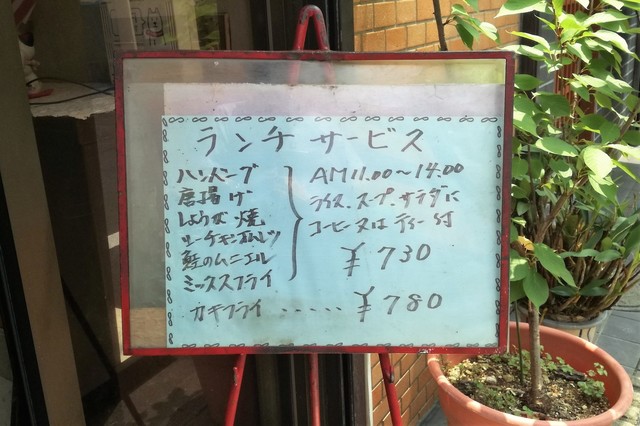 ランチ サービス
ハンバーグ
唐揚げ
しょうが焼
ツーチキンオムレツ
鮭のムニエル
ミックスフライ
AM11.00〜14.00
ライス、スープ、サラダに
コーヒー又はティー付
¥730
カキフライ ‥‥‥ ¥780